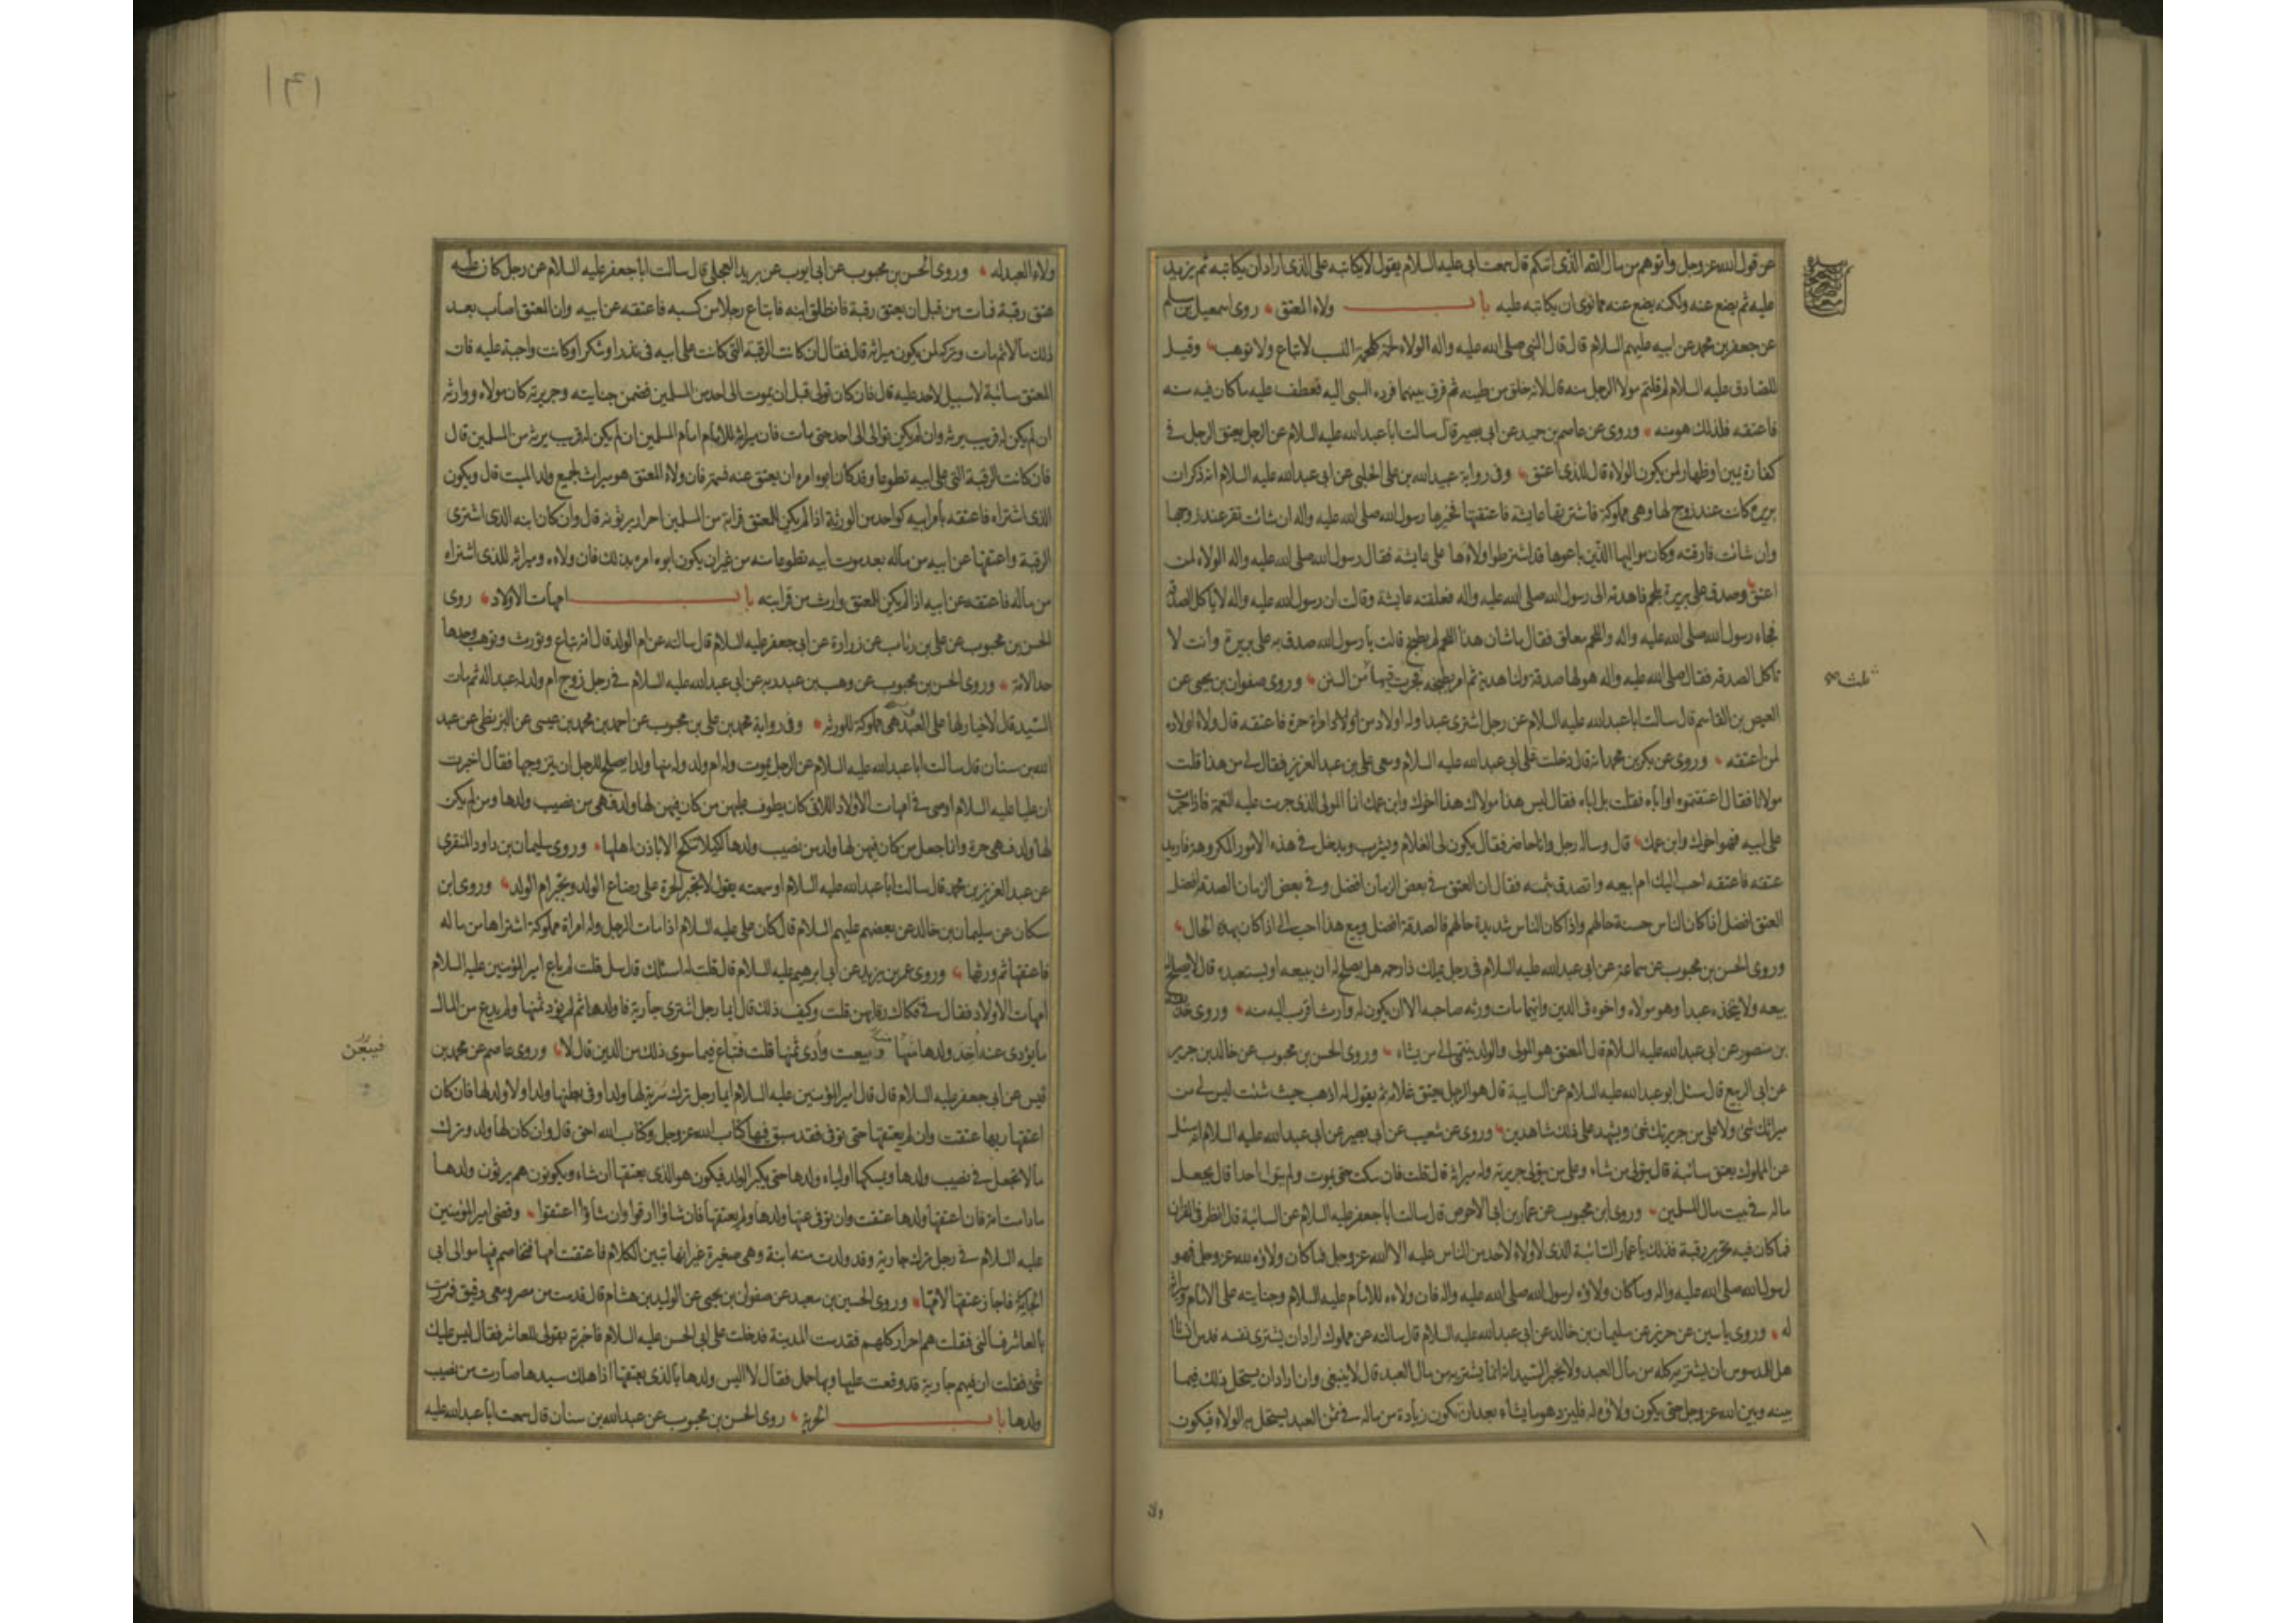 عن قول الله عز وجل وآتوهم من مال الله الذي اتيكم قال سمعت ابي عليه السلام يقول لا يكاتبه على الذي اراد ان يكاتبه ثم يزيد
عليه ثم يضع عنه ولكنه يضع عنه مما نوى ان يكاتبه عليه باب ولاء المعتق روى اسمعيل بن مسلم
عن جعفر بن محمد عن ابيه عليهم السلام قال قال النبي صلى الله عليه واله الولاء لحمة كلحمة النسب لا تباع ولا توهب وقيل
للصادق عليه السلام لم قلتم مولا الرجل منه قال لانه خلق من طينته ثم فرق بينهما فرده السبى اليه فعطف عليه ما كان فيه منه
فاعتقه فلذلك هو منه وروى عن عاصم بن حميد عن ابي بصير قال سالت ابا عبد الله عليه السلام عن الرجل يعتق الرجل في
كفارة يمين او ظهار لمن يكون الولاء قال للذي اعتق وفي رواية عبيد الله بن علي الحلبي عن ابي عبد الله عليه السلام انه ذكر ان
بريرة كانت عند زوج لها وهى مملوكة فاشترتها عايشة فاعتقتها فخيرها رسول الله صلى الله عليه واله ان شائت تقر عند زوجها
وان شائت فارقته وكان مواليها الذين باعوها قد اشترطوا ولاءها على عايشة فقال رسول الله صلى الله عليه واله الولاء لمن
اعتق وصدق على بريرة بلحم فاهدته الى رسول الله صلى الله عليه واله فعلقته عايشة وقالت ان رسول الله عليه واله لا ياكل الصدقة
فجاء رسول الله صلى الله عليه واله واللحم معلق فقال ما شان هذا اللحم لم يطبخ قالت يا رسول الله صدق به على بريرة وانت لا
تاكل الصدقة فقال صلى الله عليه واله هو لها صدقة ولنا هدية ثم امر بطبخه فجرت فيها ثلث من السنن وروى صفوان بن يحيى عن
العيص بن القاسم قال سالت ابا عبد الله عليه السلام عن رجل اشترى عبدا وله اولاد من اولاد امراة حرة فاعتقه قال ولاء اولاده
لمن اعتقه وروى عن بكر بن محمد انه قال دخلت على ابي عبد الله عليه السلام ومعى علي بن عبد العزيز فقال لي من هذا قلت
مولانا فقال اعتقتموه او اباه فقلت بل اباه فقال ليس هذا مولاك هذا اخوك وابن عمك انما المولى الذي جرت عليه النعمة فاذا جرت
على ابيه فهو اخوك وابن عمك قال وساله رجل وانا حاضر فقال يكون لي الغلام ويشرب ويدخل في هذه الامور المكروهة فاريد
عتقه فاعتقه احب اليك ام ابيعه واتصدق بثمنه فقال ان العتق في بعض الزمان افضل وفي بعض الزمان الصدقة افضل
العتق افضل اذا كان الناس حسنة حالهم واذا كان الناس شديدة حالهم فالصدقة افضل وبيع هذا احب الي اذا كان بهذه الحال
وروى الحسن بن محبوب عن سماعة عن ابي عبد الله عليه السلام في رجل يملك ذا رحمه هل يصلح له ان يبيعه او يستعبده قال لا يصلح له
بيعه ولا يتخذه عبدا وهو مولاه واخوه في الدين وايهما مات ورثه صاحبه الا ان يكون له وارث اقرب اليه منه وروى حذيفة
بن منصور عن ابي عبد الله عليه السلام قال المعتق هو المولى والولد ينتمي الى من يشاء وروى الحسن بن محبوب عن خالد بن جرير
عن ابي الربيع قال سئل ابو عبد الله عليه السلام عن السايبة قال هو الرجل يعتق غلامه ثم يقول له اذهب حيث شئت ليس لي من
ميراثك شئ ولا علي من جريرتك شئ ويشهد على ذلك شاهدين وروى عن شعيب عن ابي بصير عن ابي عبد الله عليه السلام انه سئل
عن المملوك يعتق سائبة قال يتولى من شاء وعلى من يتولى جريرته وله ميراثه قال قلت فان سكت حتى يموت ولم يتوال احدا قال يجعل
ماله في بيت مال المسلمين وروى ابن محبوب عن عمار بن ابي الاحوص قال سالت ابا جعفر عليه السلام عن السائبة قال انظر في القران
فما كان فيه تحرير رقبة فذلك يا عمار السائبة الذي لا ولاء لاحد من الناس عليه الا الله عز وجل فما كان ولاؤه لله عز وجل فهو
لرسول الله صلى الله عليه واله وما كان ولاؤه لرسول الله صلى الله عليه واله فان ولاءه للامام عليه السلام وجنايته على الامام وميراثه
له وروى ياسين عن حريز عن سليمان بن خالد عن ابي عبد الله عليه السلام قال سالته عن مملوك اراد ان يشتري نفسه فدس انسانا
هل للمدسوس ان يشتريه كله من مال العبد ولا يخبر السيد انه انما يشتريه من مال العبد قال لا ينبغي وان اراد ان يستحل ذلك فيما
بينه وبين الله عز وجل حتى يكون ولاؤه له فليزد هو ما يشاء بعد ان تكون زيادة من ماله في ثمن العبد يستحل به الولاء فيكون
ثلث
ولاء
١٤١
ولاء العبد له وروى الحسن بن محبوب عن ابي ايوب عن بريد العجلي قال سالت ابا جعفر عليه السلام عن رجل كان عليه
عتق رقبة فمات من قبل ان يعتق رقبة فانطلق ابنه فابتاع رجلا من كسبه فاعتقه عن ابيه وان المعتق اصاب بعد
ذلك مالا ثم مات وتركه لمن يكون ميراثه قال فقال ان كانت الرقبة التي كانت على ابيه في نذر او شكر او كانت واجبة عليه فان
المعتق سائبة لا سبيل لاحد عليه قال فان كان تولى قبل ان يموت الى احد من المسلمين فضمن جنايته وجريرته كان مولاه ووارثه
ان لم يكن له قريب يرثه وان لم يكن توالى الى احد حتى مات فان ميراثه للامام امام المسلمين ان لم يكن له قريب يرثه من المسلمين قال
فان كانت الرقبة التي على ابيه تطوعا وقد كان ابوه امره ان يعتق عنه نسمة فان ولاء المعتق هو ميراث لجميع ولد الميت قال ويكون
الذي اشتراه فاعتقه بامر ابيه كواحد من الورثة اذا لم يكن للمعتق قرابة من المسلمين احرار يرثونه قال وان كان ابنه الذي اشترى
الرقبة واعتقها عن ابيه من ماله بعد موت ابيه تطوعا منه من غير ان يكون ابوه امره بذلك فان ولاءه وميراثه للذي اشتراه
من ماله فاعتقه عن ابيه اذا لم يكن للمعتق وارث من قرابته باب امهات الاولاد روى
الحسن بن محبوب عن علي بن رئاب عن زرارة عن ابي جعفر عليه السلام قال سالته عن ام الولد قال امة تباع وتورث وتوهب وحدها
حد الامة وروى الحسن بن محبوب عن وهب بن عبد ربه عن ابي عبد الله عليه السلام في رجل زوج ام ولد له عبدا له ثم مات
السيد قال لا خيار لها على العبد هى مملوكة للورثة وفي رواية محمد بن علي بن محبوب عن احمد بن محمد بن عيسى عن البزنطي عن عبد
الله بن سنان قال سالت ابا عبد الله عليه السلام عن الرجل يموت وله ام ولد وله منها ولد ايصلح للرجل ان يتزوجها فقال اخبرت
ان عليا عليه السلام اوصى في امهات الاولاد اللاتي كان يطوف عليهن من كان فيهن لها ولد فهى من نصيب ولدها ومن لم يكن
لها ولد فهى حرة وانما جعل من كان فيهن لها ولد من نصيب ولدها لكيلا تنكح الا باذن اهلها وروى سليمان بن داود المنقري
عن عبد العزيز بن محمد قال سالت ابا عبد الله عليه السلام او سمعته يقول لا تجبر الحرة على رضاع الولد وتجبر ام الولد وروى ابن
مسكان عن سليمان بن خالد عن بعضهم عليهم السلام قال كان علي عليه السلام اذا مات الرجل وله امراة مملوكة اشتراها من ماله
فاعتقها ثم ورثها وروى عمر بن يزيد عن ابي ابرهيم عليه السلام قال قلت له اسئلك قال سل قلت لم باع امير المؤمنين عليه السلام
امهات الاولاد فقال في فكاك رقابهن قلت وكيف ذلك قال ايما رجل اشترى جارية فاولدها ثم لم يؤد ثمنها ولم يدع من المال
ما يؤدى عنه اخذ ولدها منها وبيعت وأدى ثمنها قلت فتباع فيما سوى ذلك من الدين قال لا وروى عاصم عن محمد بن
فيبعن
قيس عن ابي جعفر عليه السلام قال قال امير المؤمنين عليه السلام ايما رجل ترك سرية لها ولد او في بطنها ولد او لا ولد لها فان كان
اعتقها ربها عتقت وان لم يعتقها حتى توفى فقد سبق فيها كتاب الله عز وجل وكتاب الله احق قال وان كان لها ولد وترك
مالا تجعل في نصيب ولدها ويمسكها اولياء ولدها حتى يكبر الولد فيكون هو الذي يعتقها ان شاء ويكونون هم يرثون ولدها
ما دامت امة فان اعتقها ولدها عتقت وان توفى عنها ولدها ولم يعتقها فان شاؤا ارقوا وان شاؤا اعتقوا وقضى امير المؤمنين
عليه السلام في رجل ترك جارية وقد ولدت منه ابنة وهى صغيرة غير انها تبين الكلام فاعتقت امها فخاصم فيها موالى ابي
الجارية فاجاز عتقها لامها وروى الحسين بن سعيد عن صفوان بن يحيى عن الوليد بن هشام قال قدمت من مصر ومعى رقيق فمررت
بالعاشر فسالني فقلت هم احرار كلهم فقدمت المدينة فدخلت على ابي الحسن عليه السلام فاخبرته بقولي للعاشر فقال ليس عليك
شئ فقلت ان فيهم جارية قد وقعت عليها وبها حمل فقال لا اليس ولدها بالذي يعتقها اذا هلك سيدها صارت من نصيب
ولدها باب الحرية روى الحسن بن محبوب عن عبد الله بن سنان قال سمعت ابا عبد الله عليه